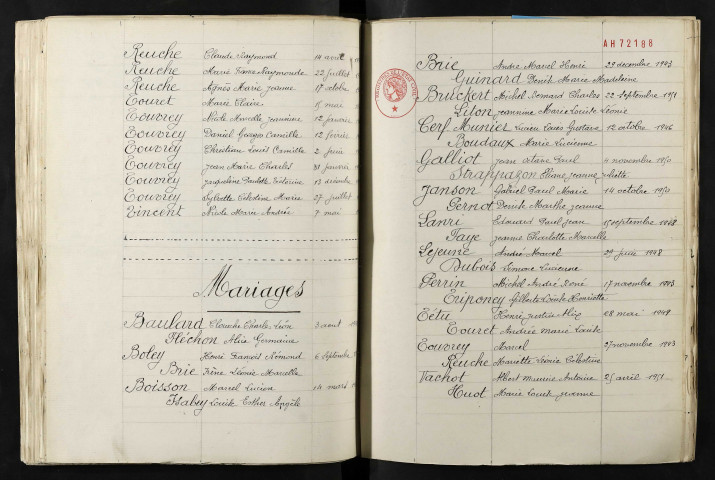 Reuche Claude Raymond 14 aout
Reuche Marie Raymonde 22 juillet
Reuche Agnès Marie Jeanne 17 octobre
Touret Marie Claire 15 mai
Touvrey Nicole Marcelle Jeannine 12 janvier
Touvrey Daniel Georges Camille 12 février
Touvrey Christian Louis Camille 2 juin
Touvrey Jean Marie Charles 31 janvier
Touvrey Jacqueline Paulette 13 décembre
Touvrey Sylvette Célestine Marie 27 juillet
Vincent Nicole Marie Andrée 7 mai
Mariages
Baulard Charles Léon 3 aout
Fléchon Alice Germaine
Boley Henri François 6 septembre
Brie Irène Léonie Marcelle
Boisson Marcel Lucien 14 mars
Isabey Louise Esther Angèle
AH72188
Brie André Marcel Henri 29 décembre 1943
Guinard Denise Marie Madeleine
Bruckert Michel Bernard Charles 22 septembre 1951
Liton Jeanne Marie Louise Léonie
Cerf Munier Lucien Louis Gustave 12 octobre 1946
Boudaux Marie Lucienne
Galliot Jean Paul 4 novembre 1950
Strappazon Eliane Jeanne
Janson Gabriel Paul Marie 14 octobre 1950
Pernot Denise Marthe Jeanne
Lanri Edouard Paul Jean 15 septembre 1948
Faye Jeanne Charlotte Marcelle
Lejeune André Marcel 29 juin 1948
Dubois Simone Lucienne
Perrin Michel André René 17 novembre 1943
Triponey Gilberte Louise Henriette
Tétu Henri Justin Alix 08 mai 1948
Touret Andrée Marie Louise
Touvrey Marcel 27 novembre 1943
Reuche Mariette Léonie Célestine
Vachot Albert Maurice Antoine 25 avril 1951
Huot Marie Louise Jeanne